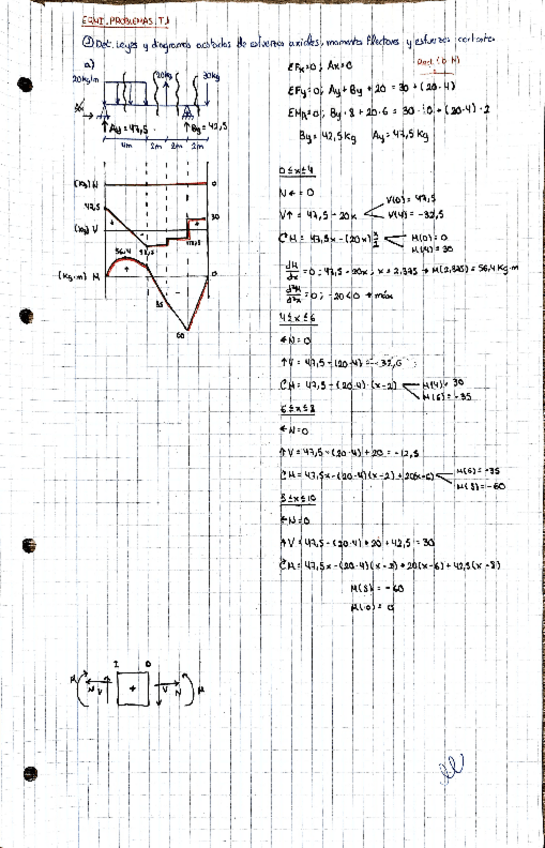 EQUI. PROBLEMAS T.1
① Det. Leyes y diagramas acotados de esfuerzos axiles, momentos flectores y esfuerzos cortantes
a)
20kg/m
20kg
30kg
Ay=47,5
By=42,5
4m 2m 2m 2m
ΣFx=0; Ax=0
ΣFy=0; Ay + By + 20 = 30 + (20·4)
ΣMA=0; By·8 + 20·6 = 30·10 + (20·4)·2
By = 42,5 kg Ay = 47,5 kg
0≤x≤4
N← = 0
V↑ = 47,5 - 20x
V(0) = 47,5
V(4) = -32,5
M = 47,5x - (20x) x/2
M(0) = 0
M(4) = 30
dM/dx = 0; 47,5 - 20x; x = 2,375 → M(2,375) = 56,4 kg·m
d²M/d²x = 0; -20<0 → máx
4≤x≤6
←N=0
↑V = 47,5 - (20·4) = -32,5
M = 47,5 - (20·4)·(x-2)
M(4) = 30
M(6) = -35
6≤x≤8
←N=0
↑V = 47,5 - (20·4) + 20 = -12,5
M = 47,5x - (20·4)(x-2) + 20(x-6)
M(6) = -35
M(8) = -60
8≤x≤10
←N=0
↑V = 47,5 - (20·4) + 20 + 42,5 = 30
M = 47,5x - (20·4)(x-2) + 20(x-6) + 42,5(x-8)
M(8) = -60
M(10) = 0
(kg) N
0
47,5
30
(kg) V
+
56,4
(kg·m) M
+
0
35
60
I D
M N V + V N M